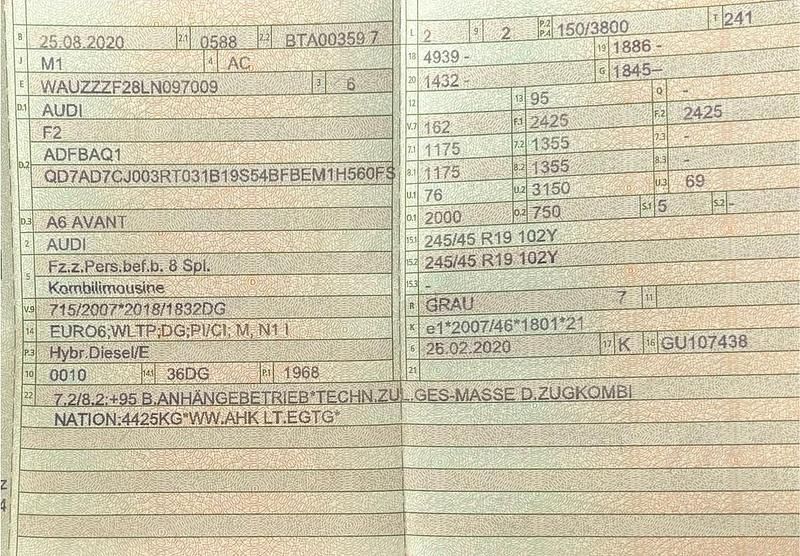 B 25.08.2020 2.1 0588 2.2 BTA00359 7
J M1 4 AC
E WAUZZZF28LN097009 3 6
D.1 AUDI
F2
D.2 ADFBAQ1
QD7AD7CJ003RT031B19S54BFBEM1H560FS
D.3 A6 AVANT
2 AUDI
5 Fz.z.Pers.bef.b. 8 Spl.
Kombilimousine
V.9 715/2007*2018/1832DG
14 EURO6;WLTP;DG;PI/CI; M, N1 I
P.3 Hybr.Diesel/E
10 0010 14.1 36DG P.1 1968
L 2 9 2 P.2 P.4 150/3800 T 241
18 4939 - 19 1886 -
20 1432 - G 1845-
12 13 95 Q -
V.7 162 F.1 2425 F.2 2425
7.1 1175 7.2 1355 7.3 -
8.1 1175 8.2 1355 8.3 -
U.1 76 U.2 3150 U.3 69
O.1 2000 O.2 750 S.1 5 S.2 -
15.1 245/45 R19 102Y
15.2 245/45 R19 102Y
15.3 -
R GRAU 7 11
K e1*2007/46*1801*21
6 26.02.2020 17 K 16 GU107438
21
22 7.2/8.2:+95 B.ANHÄNGEBETRIEB*TECHN.ZUL.GES-MASSE D.ZUGKOMBI
NATION:4425KG*WW.AHK LT.EGTG*
z
4